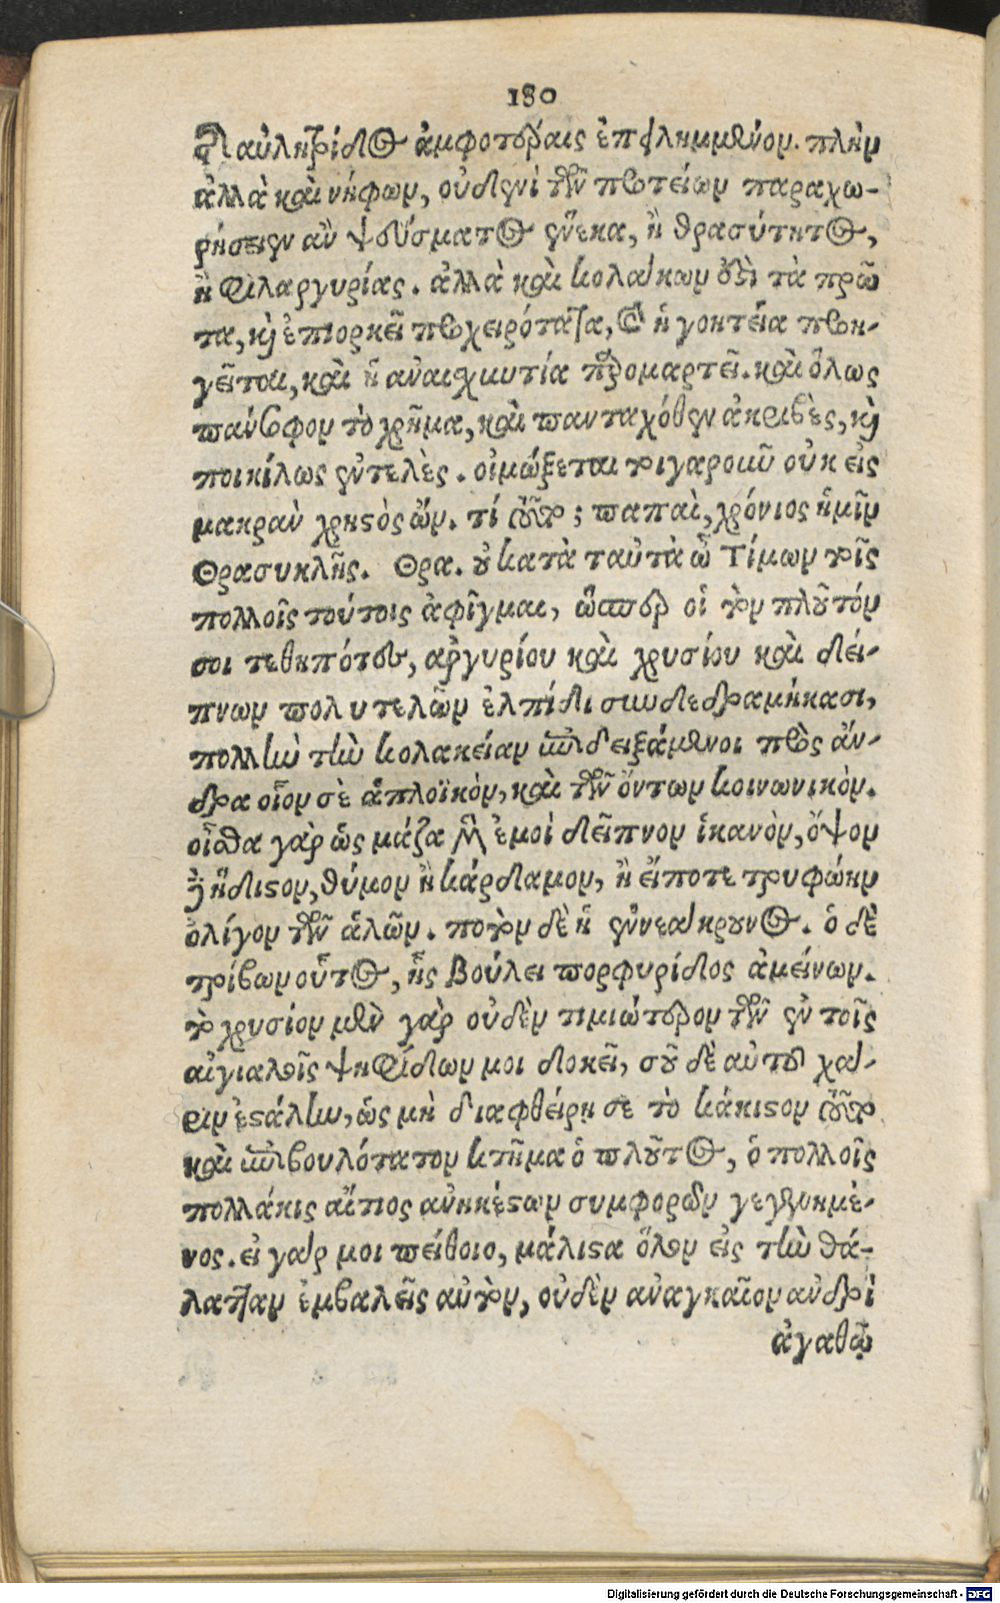 180
τῆς αὐλητρίδος ἀμφοτέραις ἐπειλημμένον. πλὴν
ἀλλὰ καὶ νήφων, οὐδενὶ τῶν πρωτείων παραχω-
ρήσειεν ἂν ψεύσματος ἕνεκα, ἢ θρασύτητος,
ἢ φιλαργυρίας. ἀλλὰ καὶ κολάκων ὅδὶ τὰ πρῶ
τα, καὶ ἐπιορκεῖ προχειρότατα, καὶ ἡ γοητεία προη-
γεῖται, καὶ ἡ ἀναισχυντία παρομαρτεῖ. καὶ ὅλως
πάνσοφον τὸ χρῆμα, καὶ πανταχόθεν ἀκριβὲς, καὶ
ποικίλως ἐντελὲς. οἰμώξεται τοιγαροῦν οὐκ εἰς
μακρὰν χρηστὸς ὤν. τί τοῦτο; παπαὶ, χρόνιος ἡμῖν
Θρασυκλῆς. Θρα. οὐ κατὰ ταὐτὰ ὦ Τίμων τοῖς
πολλοῖς τούτοις ἀφῖγμαι, ὥσπερ οἱ τὸν πλοῦτόν
σου τεθηπότες, ἀργυρίου καὶ χρυσίου καὶ δεί-
πνων πολυτελῶν ἐλπίδι συνδεδραμήκασι,
πολλὴν τὴν κολακείαν ἐπιδειξάμενοι πρὸς ἄν-
δρα οἷον σὲ ἁπλοϊκὸν, καὶ τῶν ὄντων κοινωνικὸν.
οἶσθα γὰρ ὡς μάζα μὲν ἐμοὶ δεῖπνον ἱκανὸν, ὄψον
δὲ ἥδιστον, θύμον ἢ κάρδαμον, ἢ εἴποτε τρυφώην
ὀλίγον τῶν ἁλῶν. ποτὸν δὲ ἡ ἐννεάκρουνος. ὁ δὲ
τρίβων οὗτος, ἧς βούλει πορφυρίδος ἀμείνων.
τὸ χρυσίον μὲν γὰρ οὐδὲν τιμιώτερον τῶν ἐν τοῖς
αἰγιαλοῖς ψηφίδων μοι δοκεῖ, σοῦ δὲ αὐτοῦ χά-
ριν ἐστάλην, ὡς μὴ διαφθείρῃ σε τὸ κάκιστον τοῦτο
καὶ ἐπιβουλότατον κτῆμα ὁ πλοῦτος, ὁ πολλοῖς
πολλάκις αἴτιος ἀνηκέστων συμφορῶν γεγενημέ-
νος. εἰ γάρ μοι πείθοιο, μάλιστα ὅλον εἰς τὴν θά-
λατταν ἐμβαλεῖς αὐτὸν, οὐδὲν ἀναγκαῖον ἀνδρὶ
ἀγαθῷ
Digitalisierung gefördert durch die Deutsche Forschungsgemeinschaft - DFG